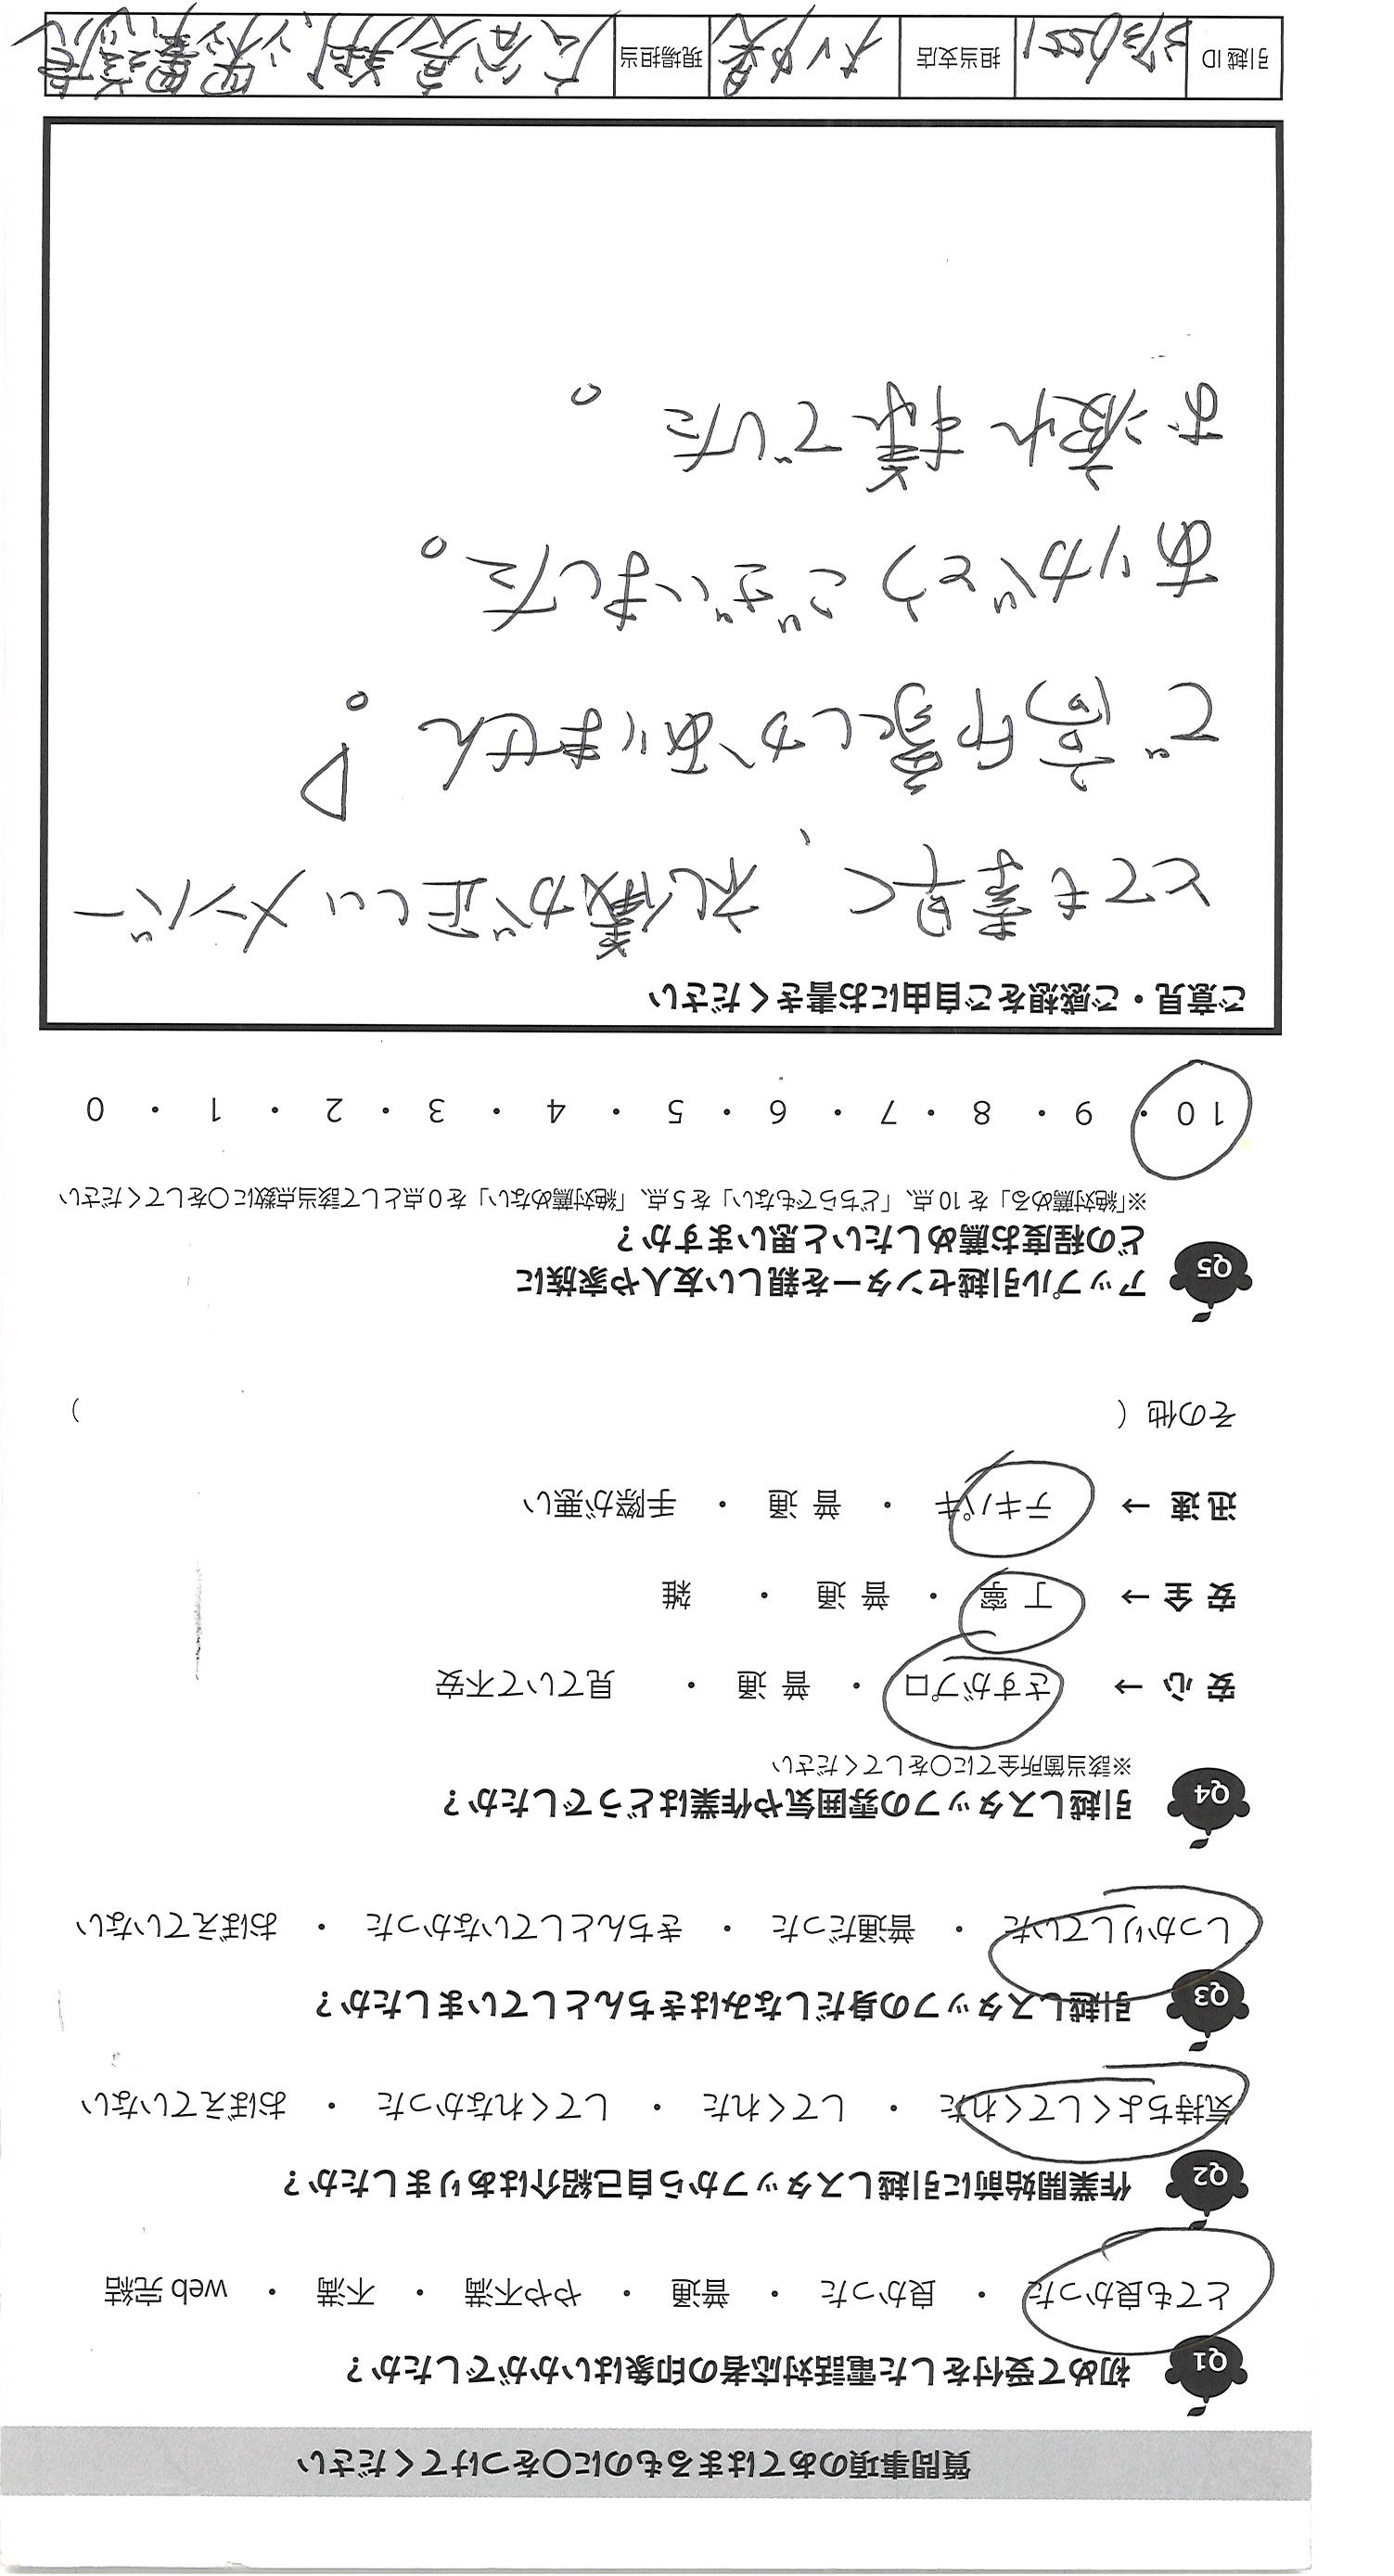 質問事項のあてはまるものに〇をつけてください
Q1 初めて受付をした電話対応者の印象はいかがでしたか？
とても良かった ・ 良かった ・ 普通 ・ やや不満 ・ 不満 ・ web 完結
Q2 作業開始前に引越しスタッフから自己紹介はありましたか？
気持ちよくしてくれた ・ してくれた ・ してくれなかった ・ おぼえていない
Q3 引越しスタッフの身だしなみはきちんとしていましたか？
しっかりしていた ・ 普通だった ・ きちんとしていなかった ・ おぼえていない
Q4 引越しスタッフの雰囲気や作業はどうでしたか？
※該当箇所全てに〇をしてください
安 心 → さすがプロ ・ 普 通 ・ 見ていて不安
安 全 → 丁 寧 ・ 普 通 ・ 雑
迅 速 → テキパキ ・ 普 通 ・ 手際が悪い
その他（ ）
Q5 アップル引越センターを親しい友人や家族に
どの程度お薦めしたいと思いますか？
※「絶対薦める」を 10 点、「どちらでもない」を 5 点、「絶対薦めない」を 0 点として該当点数に〇をしてください
10 ・ 9 ・ 8 ・ 7 ・ 6 ・ 5 ・ 4 ・ 3 ・ 2 ・ 1 ・ 0
ご意見・ご感想をご自由にお書きください
とても素早く、礼儀が正しいメンバー
で高印象しかありません。
ありがとうございました。
お疲れ様でした。
引越 ID 担当支店 現場担当